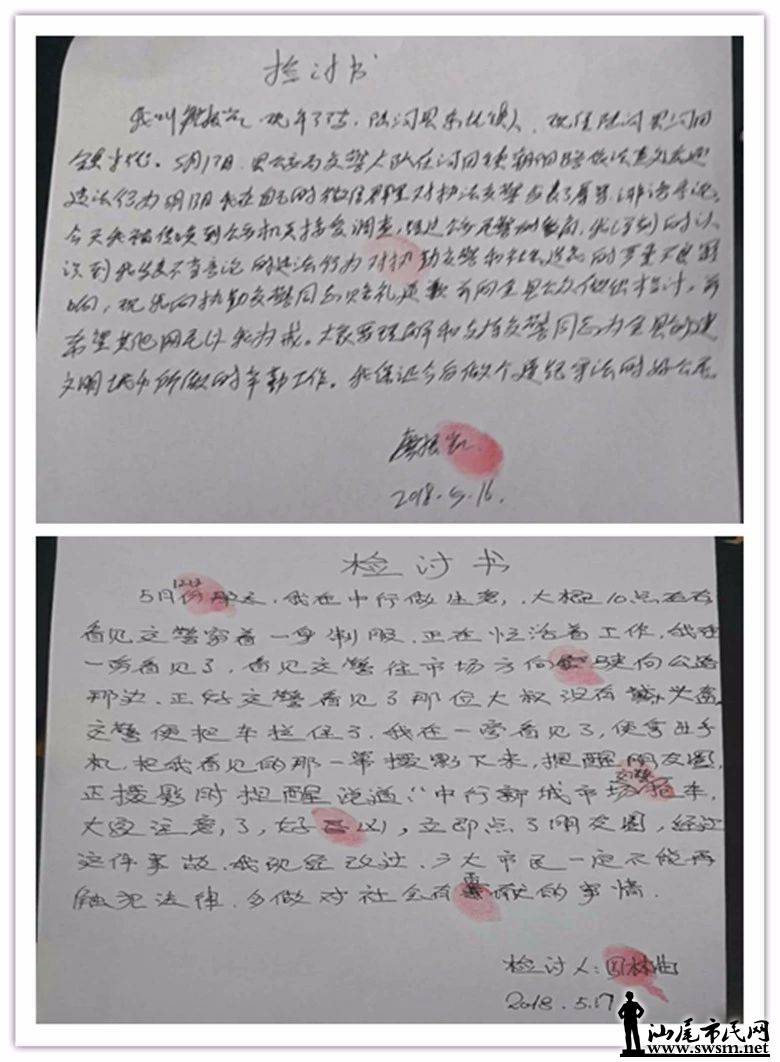 检讨书
我叫 现年 岁，陆河县东坑镇人，现住陆河县河田
镇 。5月17日，县公安局交警大队在河田镇朝阳路依法查处交通
违法行为时，我在自己的微信群里对执法交警发表了辱骂、诽谤言论。
今天我被传唤到公安机关接受调查，经过公安民警 ，我深刻的认
识到我发表不当言论的违法行为对执勤交警和社会造成的严重不良影
响，现我向执勤交警同志赔礼道歉并向全县公众作出检讨，并
希望其他网民以我为戒。大家要理解和支持交警同志为全县创建
文明城市所做的辛勤工作。我保证今后做个遵纪守法的好公民。
2018.5.16.
检讨书
5月份那天，我在中行做生意，大概10点左右
看见交警穿着一身制服，正在忙活着工作，我在
一旁看见了，看见交警往市场方向 驶向公路
那边，正好交警看见了那位大叔没有戴头盔
交警便把车拦住了，我在一旁看见了，便拿出手
机，把我看见的那一幕摄影下来，提醒朋友圈，
正摄影时提醒说道："中行新城市场交警抢车，
大家注意，了，好 ，立即点了朋友圈，经过
这件事故，我现经改过，广大市民一定不能再
触犯法律，多做对社会有贡献的事情.
检讨人：
2018.5.17
汕尾市民网
www.swsm.net